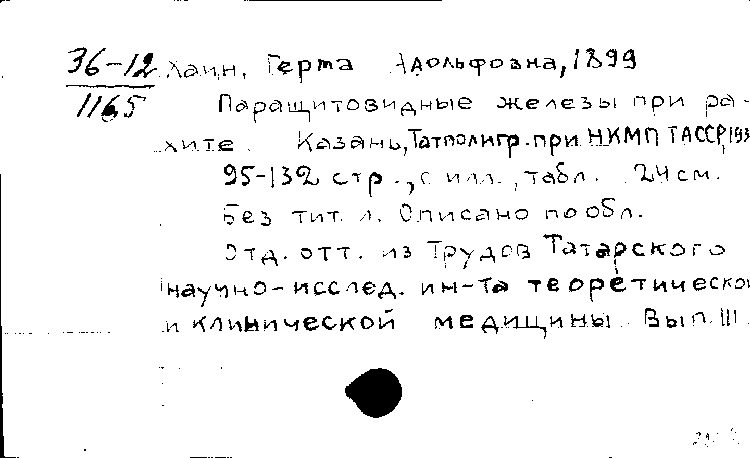 36-12 Хаин, Герта Адольфовна, 1899
1165 Паращитовидные железы при ра-
хите. Казань, Татполигр. при НКМП ТАССР, 193
95-132 стр., с илл., табл. 24 см.
Без тит. л. Описано по обл.
Отд. отт. из Трудов Татарского
научно-исслед. ин-та теоретической
и клинической медицины. Вып. III